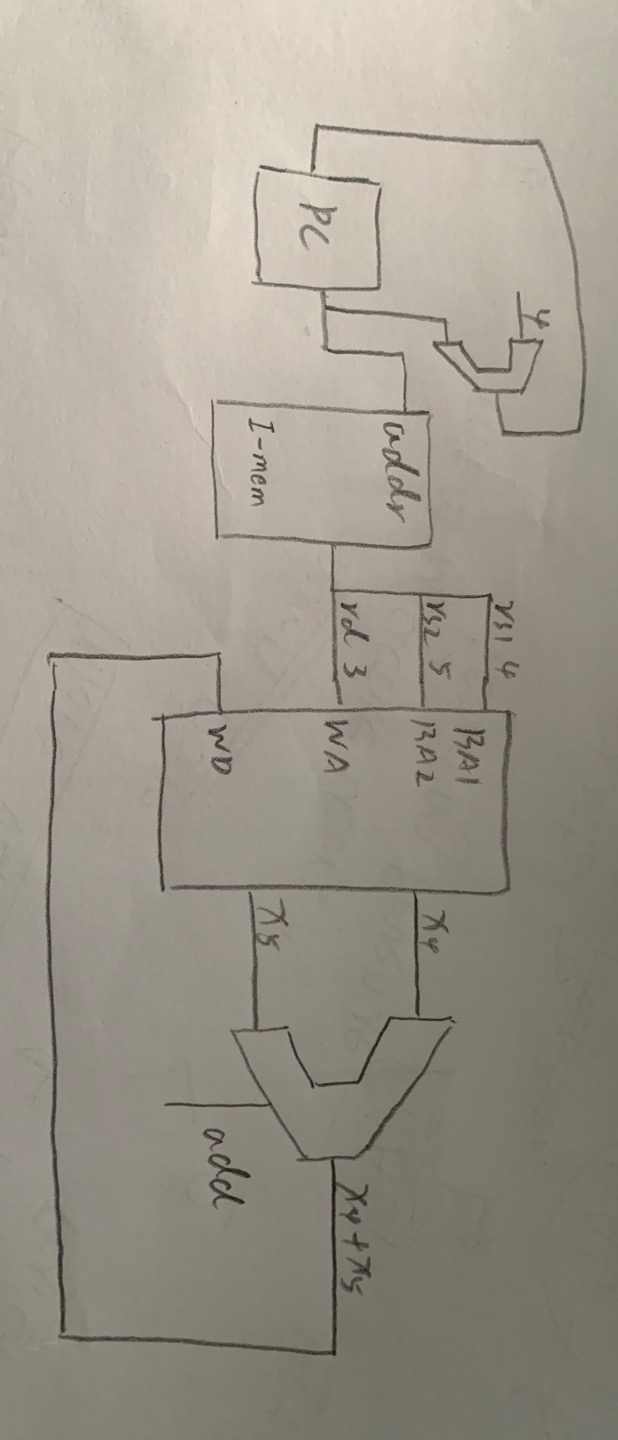 4
PC
addr
I-mem
rs1 4
rs2 5
rd 3
BA1
BA2
WA
WD
x4
x5
add
x4+x5